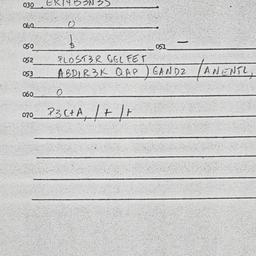 030 EK14B3N35
040 0
050 $ 051 —
052 FLOST3R GELFET
053 ABDIR3K QAP ) GANDZ / ANENTL,
060 0
070 P3C+A, /+ /+